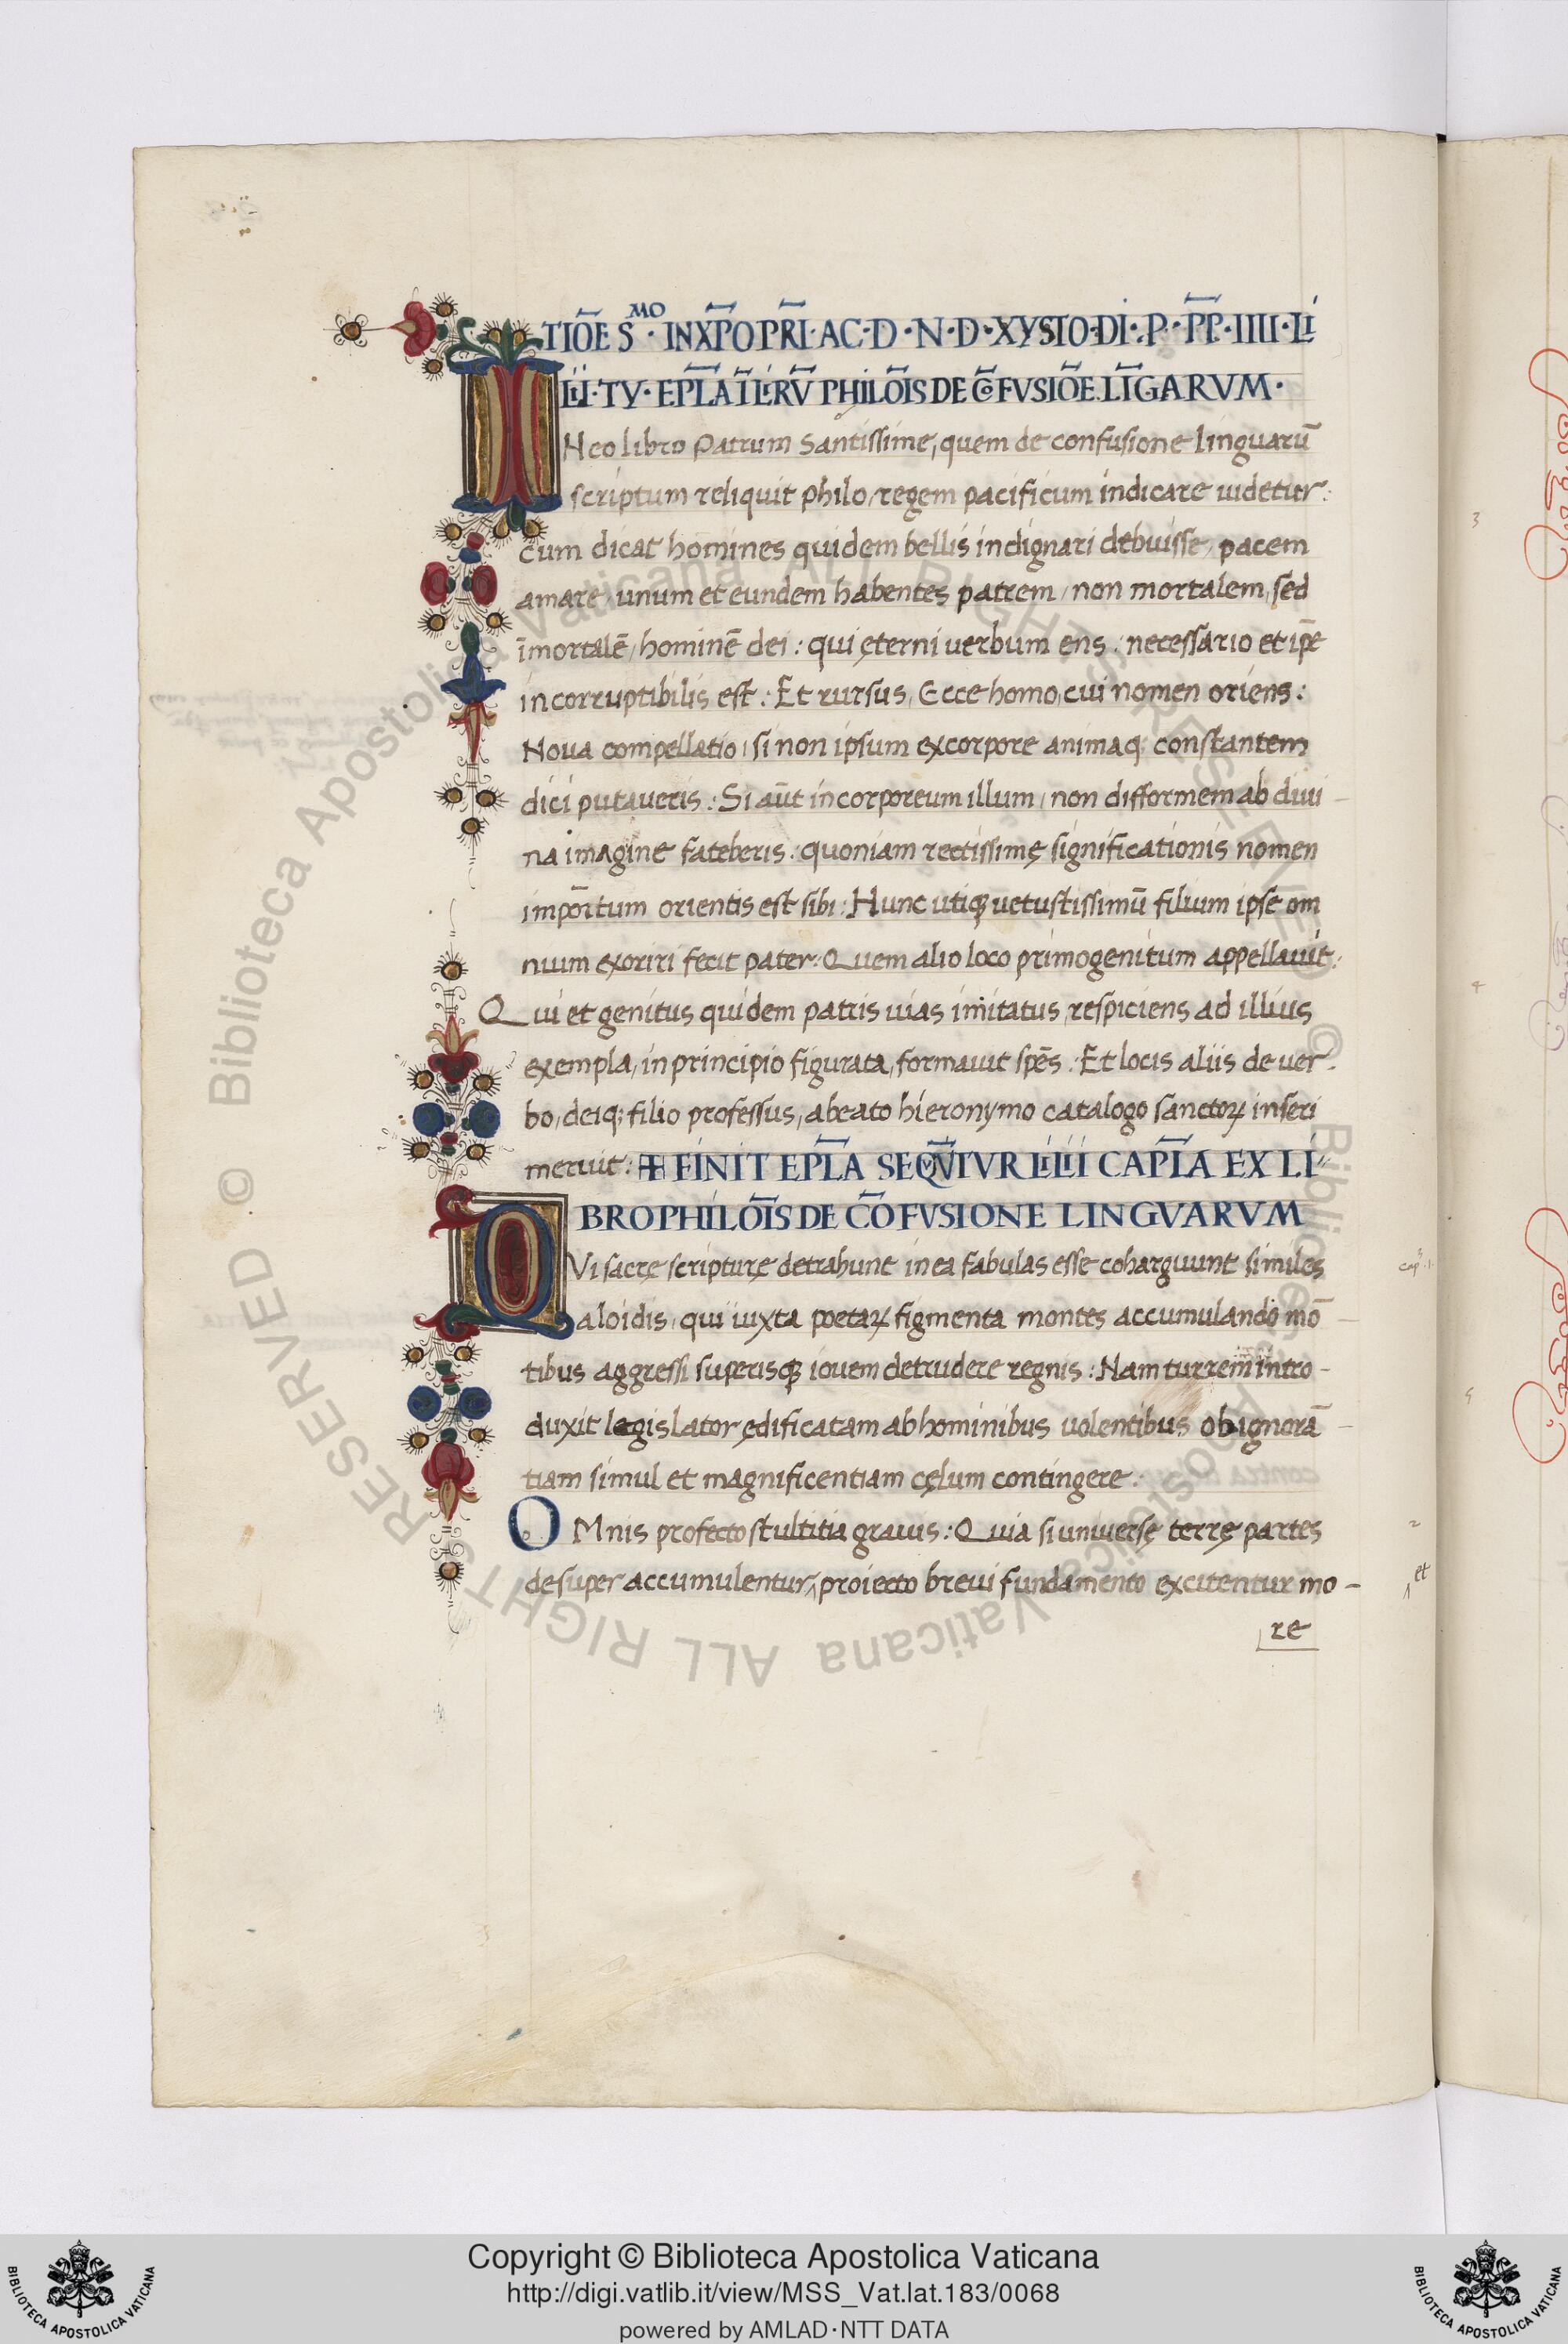 TIŌE S MO · IN XP̄O PR̄I · AC · D · N · D · XYSTO · DI · P · PP̄ · IIII · LI
LII · TY · EPL̄A Ī LIRŪ PHILŌIS DE C̄OFVSIŌE LĪGARVM ·
IN eo libro Patrum Santissime, quem de confusione linguarū
scriptum reliquit philo, regem pacificum indicare uidetur:
cum dicat homines quidem bellis indignari debuisse, pacem
amare, unum et eundem habentes patrem, non mortalem, sed
īmortalē, hominē dei: qui ęterni uerbum ens: necessario et ip̄e
incorruptibilis est: Et rursus, Ecce homo, cui nomen oriens:
Noua compellatio, si non ipsum ex corpore animaq; constantem
dici putaueris: Si aūt incorporeum illum, non difformem ab diui-
na imagine fateberis: quoniam rectissimę significationis nomen
impōrtum orientis est sibi: Hunc utiqꝫ uetustissimū filium ipse om
nium exoriri fecit pater: Quem alio loco primogenitum appellauit:
Qui et genitus quidem patris uias imitatus, respiciens ad illius
exempla, in principio figurata, formauit spēs: Et locis aliis de uer
bo, deiq; filio professus, abeato hieronymo catalogo sanctoꝝ inseri
meruit: FINIT EPL̄A SEQVĪTVR LILII CAPL̄A EX LI
BRO PHILŌIS DE C̄OFVSIONE LINGVARVM
QVi sacrę scripturę detrahunt in ea fabulas esse coharguunt similes
cap. 1.
aloidis, qui iuxta poetaꝝ figmenta montes accumulando mō
tibus aggressi superisqꝫ iouem detrudere regnis: Nam turrem intro-
duxit legislator ędificatam ab hominibus uolentibus ob ignorā-
tiam simul et magnificentiam cęlum contingere:
OMnis profecto stultitia grauis: Quia si uniuersę terrę partes
2
desuper accumulentur, proiecto breui fundamento excitentur mo-
et
re
3
4
5
Copyright © Biblioteca Apostolica Vaticana
http://digi.vatlib.it/view/MSS_Vat.lat.183/0068
powered by AMLAD·NTT DATA
BIBLIOTECA APOSTOLICA VATICANA
BIBLIOTECA APOSTOLICA VATICANA
© Biblioteca Apostolica Vaticana ALL RIGHTS RESERVED
© Biblioteca Apostolica Vaticana ALL RIGHTS RESERVED